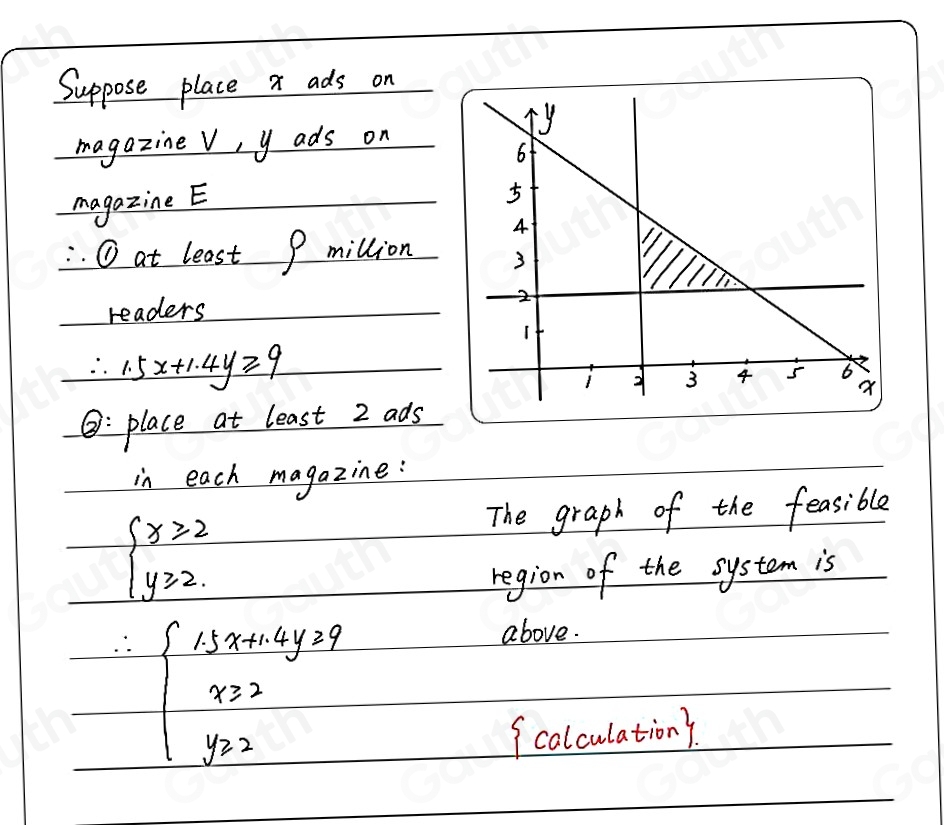 Suppose place x ads on
magazine V, y ads on
magazine E
∴ ① at least 9 million
readers
∴ 1.5x+1.4y≥9
②: place at least 2 ads
in each magazine:
{x≥2
y≥2.
∴ { 1.5x+1.4y≥9
x≥2
y≥2
y
6
5
4
3
2
1
1 2 3 4 5 6
x
The graph of the feasible
region of the system is
above.
{calculation}.
Gauth